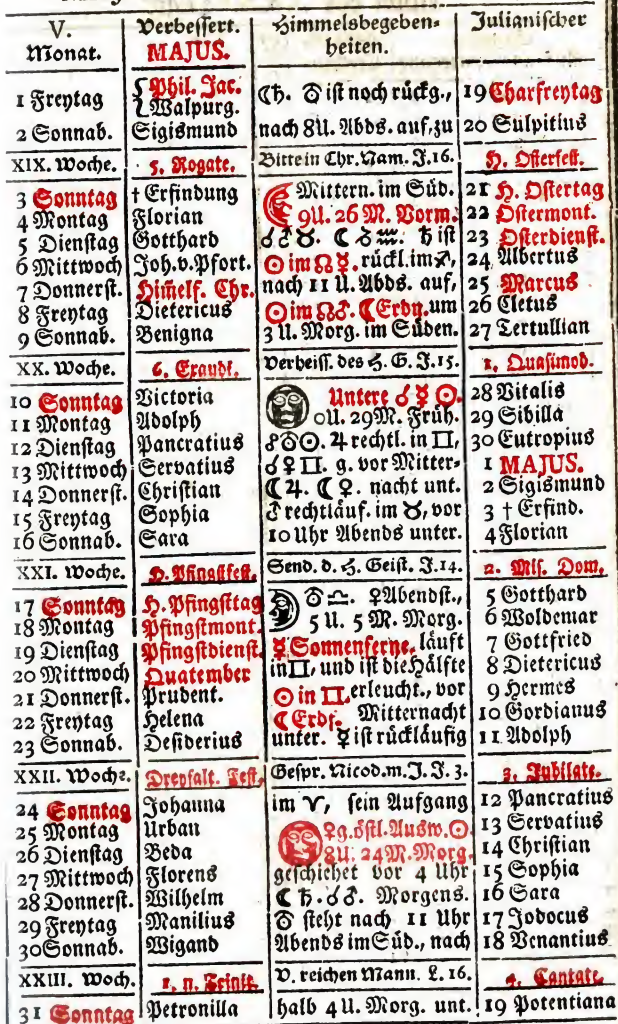 V. Monat. | Verbeſſert. MAJUS. | Himmelsbegeben-heiten. | Julianiſcher
1 Freytag | Phil. Jac. Walpurg. | ☾♄. ♁ iſt noch rückg., | 19 Charfreytag
2 Sonnab. | Sigismund | nach 8U. Abds. auf, zu | 20 Sulpitius
XIX. Woche. | 5. Rogate. | Bitte in Chr. Nam. J. 16. | H. Oſterfeſt.
3 Sonntag | † Erfindung | Mittern. im Süd. | 21 H. Oſtertag
4 Montag | Florian | 9U. 26 M. Vorm. | 22 Oſtermont.
5 Dienſtag | Gotthard | ☌♂♉. ☾☋♒. ♄ iſt | 23 Oſterdienſt.
6 Mittwoch | Joh. v. Pfort. | ☉ im ☊☿. rückl. im ♐, | 24 Albertus
7 Donnerſt. | Him̄elf. Chr. | nach 11 U. Abds. auf, | 25 Marcus
8 Freytag | Dietericus | ☉ im ☊♂. ☾ Erdn. um | 26 Cletus
9 Sonnab. | Benigna | 3 U. Morg. im Süden. | 27 Tertullian
XX. Woche. | 6. Exaudi. | Verheiſſ. des H. G. J. 15. | 1. Quaſimod.
10 Sonntag | Victoria | Untere ☌ ☿ ☉. | 28 Vitalis
11 Montag | Adolph | 0U. 29M. Früh. | 29 Sibilla
12 Dienſtag | Pancratius | ☍♁☉. ♃ rechtl. in ♊, | 30 Eutropius
13 Mittwoch | Servatius | ☌♀♊. g. vor Mitter- | 1 MAJUS.
14 Donnerſt. | Chriſtian | ☾♃. ☾♀. nacht unt. | 2 Sigismund
15 Freytag | Sophia | ♂ rechtläuf. im ♉, vor | 3 † Erfind.
16 Sonnab. | Sara | 10 Uhr Abends unter. | 4 Florian
XXI. Woche. | H. Pfingſtfeſt. | Send. d. H. Geiſt. J. 14. | 2. Miſ. Dom.
17 Sonntag | H. Pfingſttag | ♁ ♎. ♀ Abendſt., | 5 Gotthard
18 Montag | Pfingſtmont. | 5 U. 5 M. Morg. | 6 Woldemar
19 Dienſtag | Pfingſtdienſt. | ☿ Sonnenferne, läuft | 7 Gottfried
20 Mittwoch | Quatember | in ♊, und iſt die Hälfte | 8 Dietericus
21 Donnerſt. | Prudent. | ☉ in ♊, erleucht., vor | 9 Hermes
22 Freytag | Helena | ☾ Erdf. Mitternacht | 10 Gordianus
23 Sonnab. | Deſiderius | unter. ☿ iſt rückläufig | 11 Adolph
XXII. Woche. | Dreyfalt. Feſt. | Geſpr. Nicod. m. J. J. 3. | 3. Jubilate.
24 Sonntag | Johanna | im ♈, ſein Aufgang | 12 Pancratius
25 Montag | Urban | ♀ g. öſtl. Ausw. ☉ | 13 Servatius
26 Dienſtag | Beda | 8U. 24M. Morg. | 14 Chriſtian
27 Mittwoch | Florens | geſchiehet vor 4 Uhr | 15 Sophia
28 Donnerſt. | Wilhelm | ☾ ♄. ☌♂. Morgens. | 16 Sara
29 Freytag | Manilius | ♁ ſteht nach 11 Uhr | 17 Jodocus
30 Sonnab. | Wigand | Abends im Süd., nach | 18 Venantius
XXIII. Woch. | 1. n. Trinit. | V. reichen Mann. L. 16. | 4. Cantate.
31 Sonntag | Petronilla | halb 4 U. Morg. unt. | 19 Potentiana